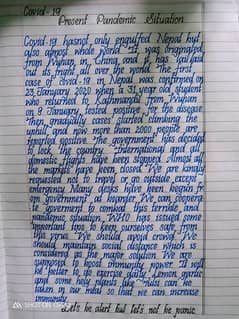 Covid-19
Present Pandemic Situation
Covid-19 hasnot only engulfed Nepal but
also almost whole world. It was originated
from Wuhan, in China and it has laid
out its fright all over the world. The first
case of covid-19 in Nepal was confirmed on
23 January 2020 when a 31 year old student
who returned to Kathmandu from Wuhan
on 9 January, tested positive for the disease
Then, gradually cases started climbing the
uphill and now more than 2000 people are
reported positive. The government has decided
to lock the country. International and all
domestic flights have been stopped. Almost all
the markets have been closed. We are kindly
requested not to imply or go outside except
emergency. Many desks have been begun
from government at boarder. We can cooperate
to goverment to combat this terrible and
pandemic situation. WHO has issued some
important tips to keep ourselves safe from
this virus. We should avoid crowd. We
should maintain social distance which is
considered as the major solution. We are
supposed to boost immunity power. It will
be better to do exercise daily. Lemon, garlic
and some help plants like can be
taken in our meal so that we can increase
immunity.
Let's be alert but let's not be panic.
SHOT ON